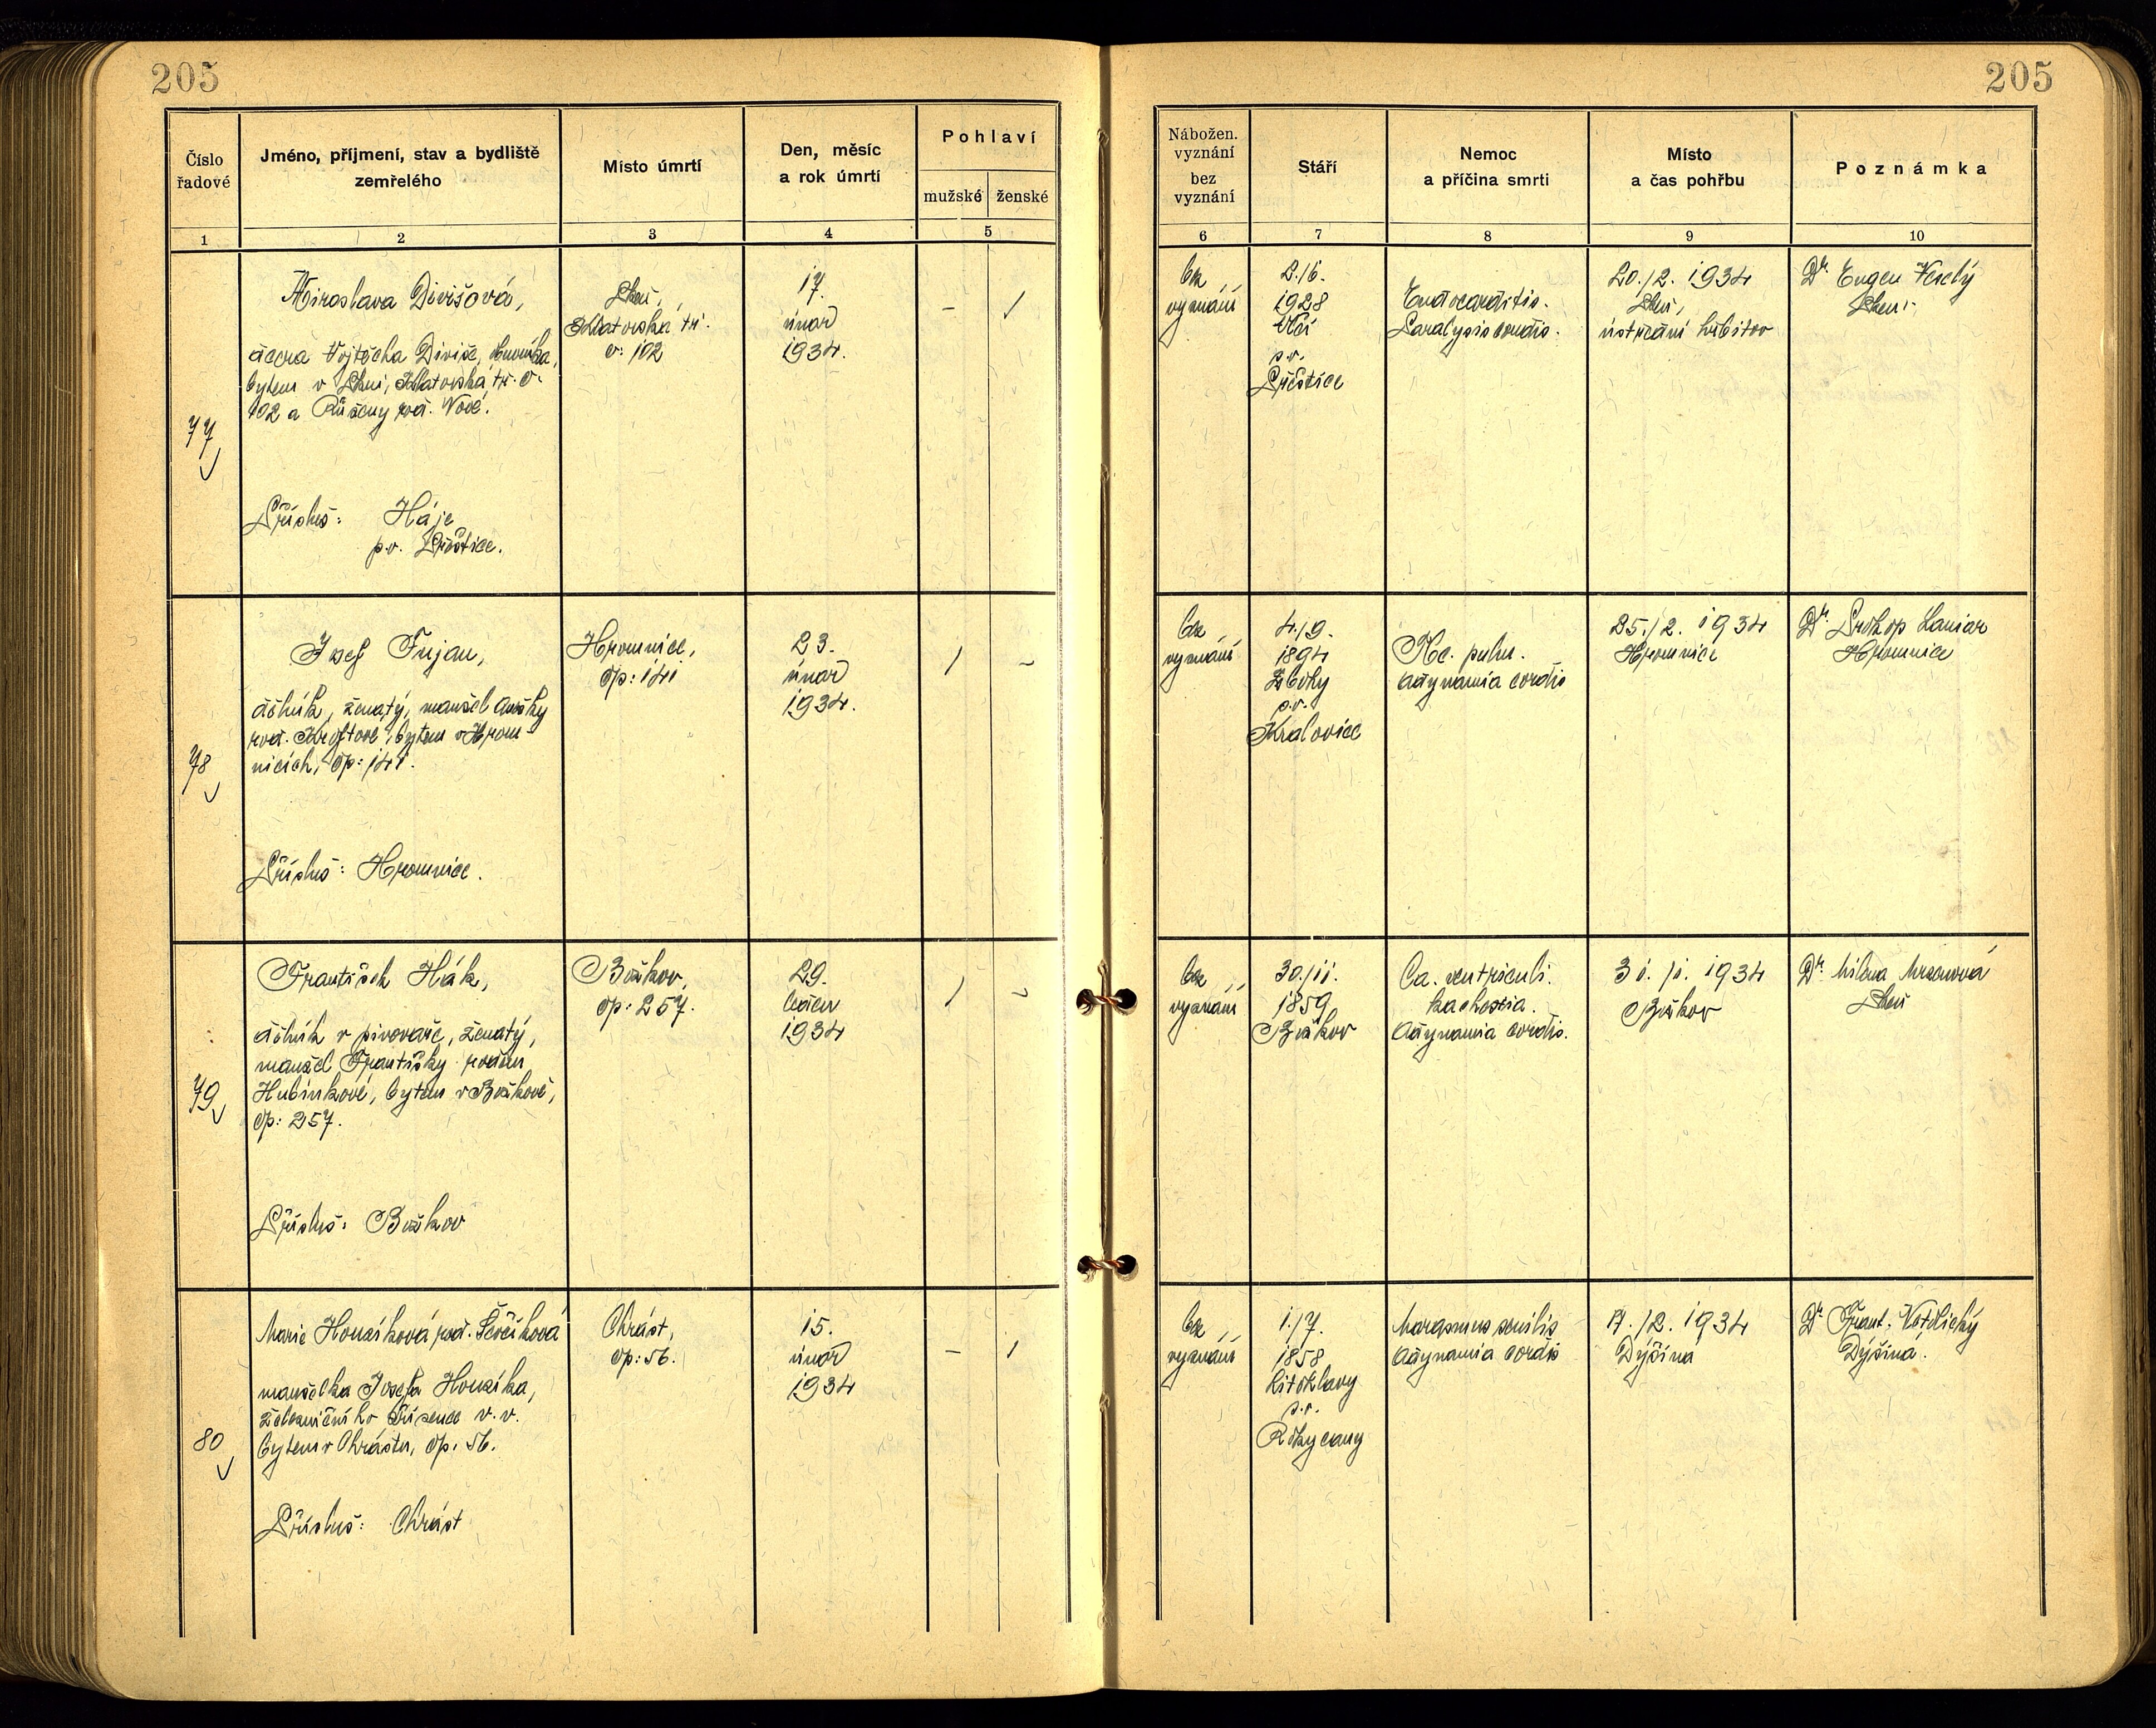 205
205
Číslo
řadové
Jméno, příjmení, stav a bydliště
zemřelého
Místo úmrtí
Den, měsíc
a rok úmrtí
Pohlaví
mužské
ženské
1
2
3
4
5
Nábožen.
vyznání
bez
vyznání
Stáří
Nemoc
a příčina smrti
Místo
a čas pohřbu
Poznámka
6
7
8
9
10
77
Miroslava Divišová,
dcera Vojtěcha Diviše,
bytem v Plzni, Klatovská tř. č.
102 a Růženy roz. Nové.
Přísluš: Háje
p.v. Přeštice.
Plzeň,
Klatovská tř.
č: 102
17.
únor
1934.
–
1
bez
vyznání
2./6.
1928
Vlčí
p.v.
Přeštice
Endocarditis.
Paralysis cordis.
20./2. 1934
Plzeň,
ústřední hřbitov
Dr. Eugen Veselý
Plzeň.
78
Josef Trojan,
dělník, ženatý, manžel Anežky
roz. Kroftové, bytem v Hrom-
nicích, čp: 141.
Přísluš: Hromnice.
Hromnice,
čp: 141
23.
únor
1934.
1
–
bez
vyznání
4./9.
1894
p.v.
Kralovice
Tbc. pulm.
Adynamia cordis
25./2. 1934
Hromnice
Dr. Prokop Laniar
Hromnice
79
František Hák,
dělník v pivovaře, ženatý,
manžel Františky rozen.
Hubínkové, bytem v Božkově,
čp: 257.
Přísluš: Božkov
Božkov,
čp: 257.
29.
leden
1934
1
–
bez
vyznání
30./11.
1859
Božkov
Ca. ventriculi.
kachexia.
Adynamia cordis.
31. /1. 1934
Božkov
Dr. Milena Mrzenová
Plzeň
80
Marie Houzíková, roz. Ševčíková
manželka Josefa Houzíka,
železničního zřízence v.v.
bytem v Chrástu, čp. 56.
Přísluš: Chrást
Chrást,
čp: 56.
15.
únor
1934
–
1
bez
vyznání
1./7.
1858
Litohlavy
p.v.
Rokycany
Marasmus senilis
Adynamia cordis
17./2. 1934
Dýšina
Dr. Frant. Kotělický
Dýšina.